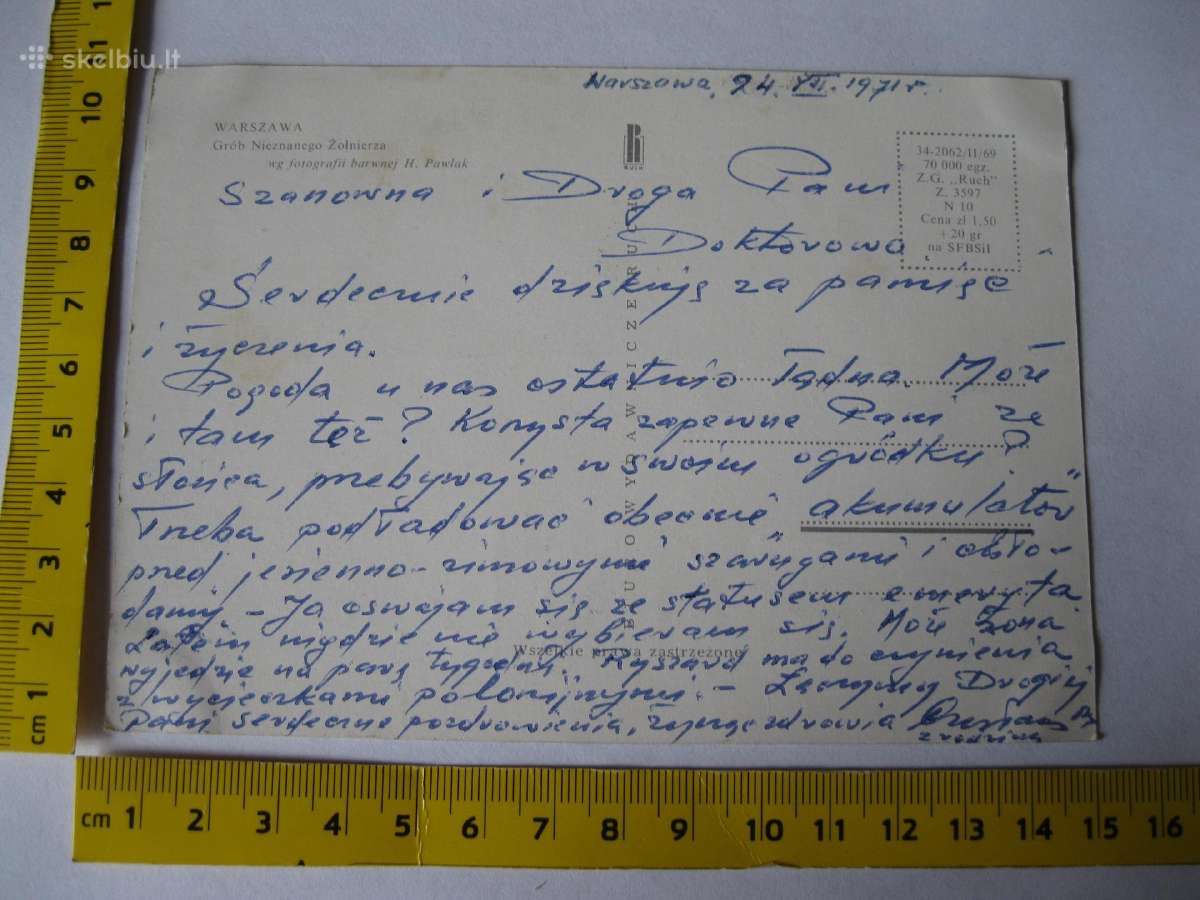 skelbiu.lt
Warszawa, 24. VII. 1971 r.
WARSZAWA
Grób Nieznanego Żołnierza
wg fotografii barwnej H. Pawlak
RUCH
34-2062/II/69
70 000 egz.
Z.G. „Ruch"
Z. 3597
N 10
Cena zł 1,50
+ 20 gr
na SFBSiI
Szanowna i Droga Pani
Doktorowo
Serdecznie dziękuję za pamięć
i życzenia.
Pogoda u nas ostatnio ładna. Może
i tam też? Korzysta zapewne Pani ze
słońca, przebywając w swoim ogródku?
Trzeba podładować obecnie „akumulator"
przed jesienno-zimowymi szarugami i chło-
dami – Ja oswajam się ze statusem emeryta.
Latem nigdzie nie wybieram się. Może żona
wyjedzie na parę tygodni. Ryszard ma do czynienia
z wycieczkami polonijnymi. – Łączymy Drogiej
Pani serdeczne pozdrowienia, życząc zdrowia
z rodziną
BIURO WYDAWNICZE RUCH
Wszelkie prawa zastrzeżone
cm 1 2 3 4 5 6 7 8 9 10 11
cm 1 2 3 4 5 6 7 8 9 10 11 12 13 14 15 16